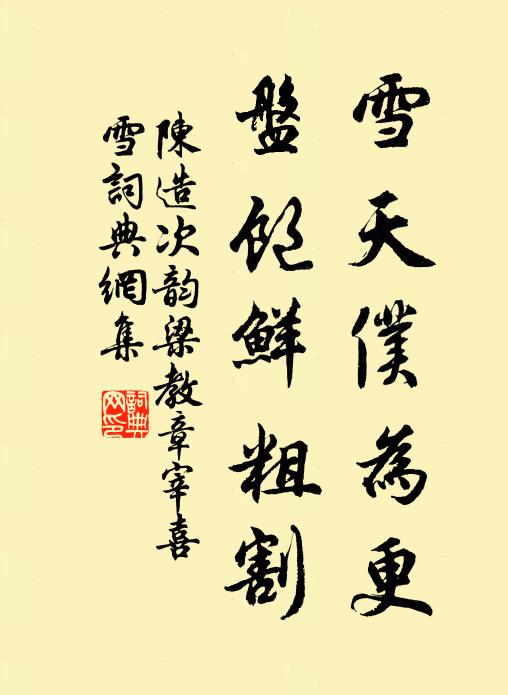 雪天僕為更
盤飣鮮粗割
陳造次韵梁教章宰喜
雪詞典網集
詞典
网印